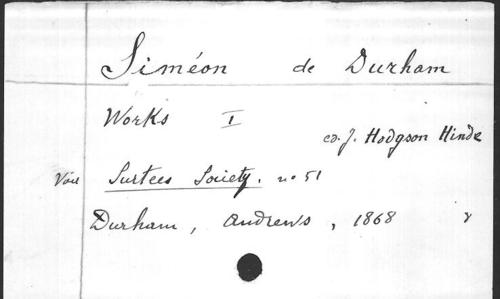 Siméon de Durham
Works I
ed. J. Hodgson Hinde
Voir Surtees Society. no 51
Durham, Andrews, 1868